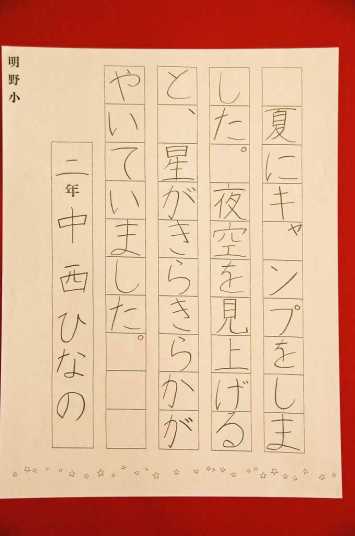 夏にキャンプをしま
した。夜空を見上げる
と、星がきらきらかが
やいていました。
二年 中西ひなの
明野小